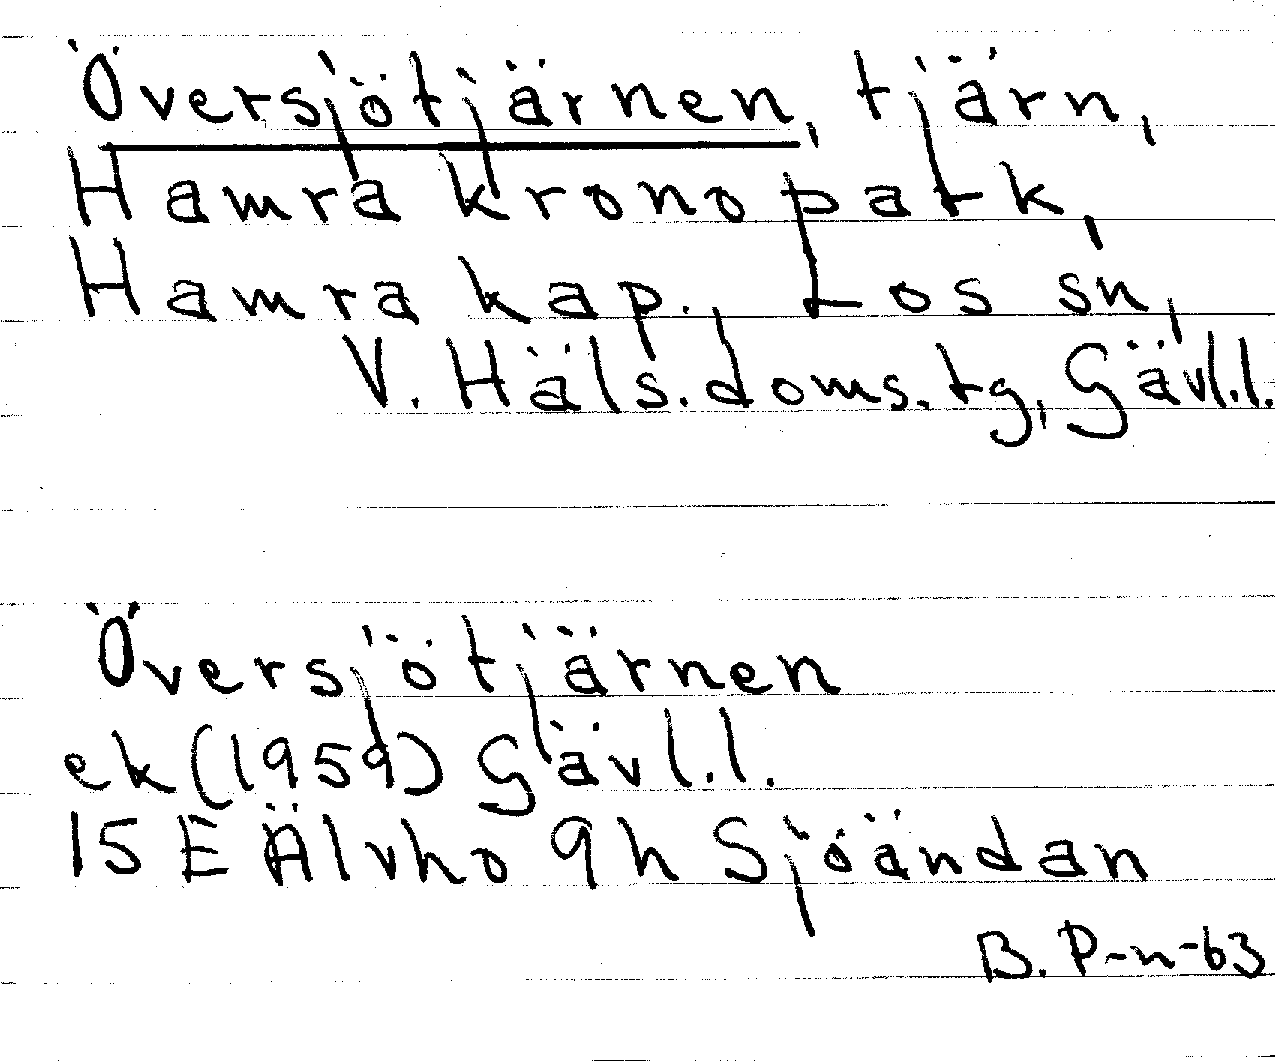 Översjötjärnen, tjärn,
Hamra kronopark,
Hamra kap., Los sn,
V. Häls. doms. tg, Gävl.l.
Översjötjärnen
ek (1959) Gävl.l.
15 E Älvho 9h Sjöändan
B. P-n-63